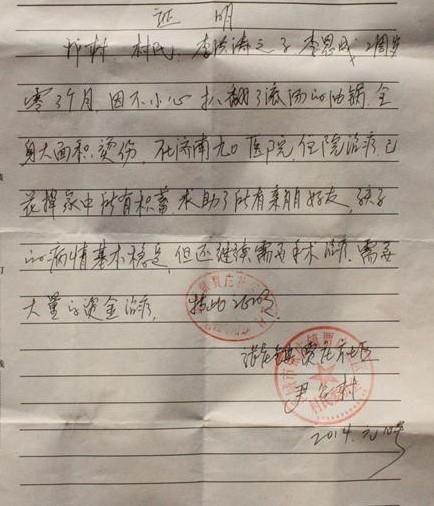 证 明
村民 李洪涛之子 李恩成 2周岁
零3个月,因不小心 扒翻了滚沸的油锅,全
身大面积烫伤,在济南九〇医院住院治疗,已
花掉家中所有积蓄,求助了所有亲朋好友,孩子
的病情基本稳定,但还继续需要手术治疗,需要
大量的资金治疗,特此证明。
贾庄社区
尹 村
2014.